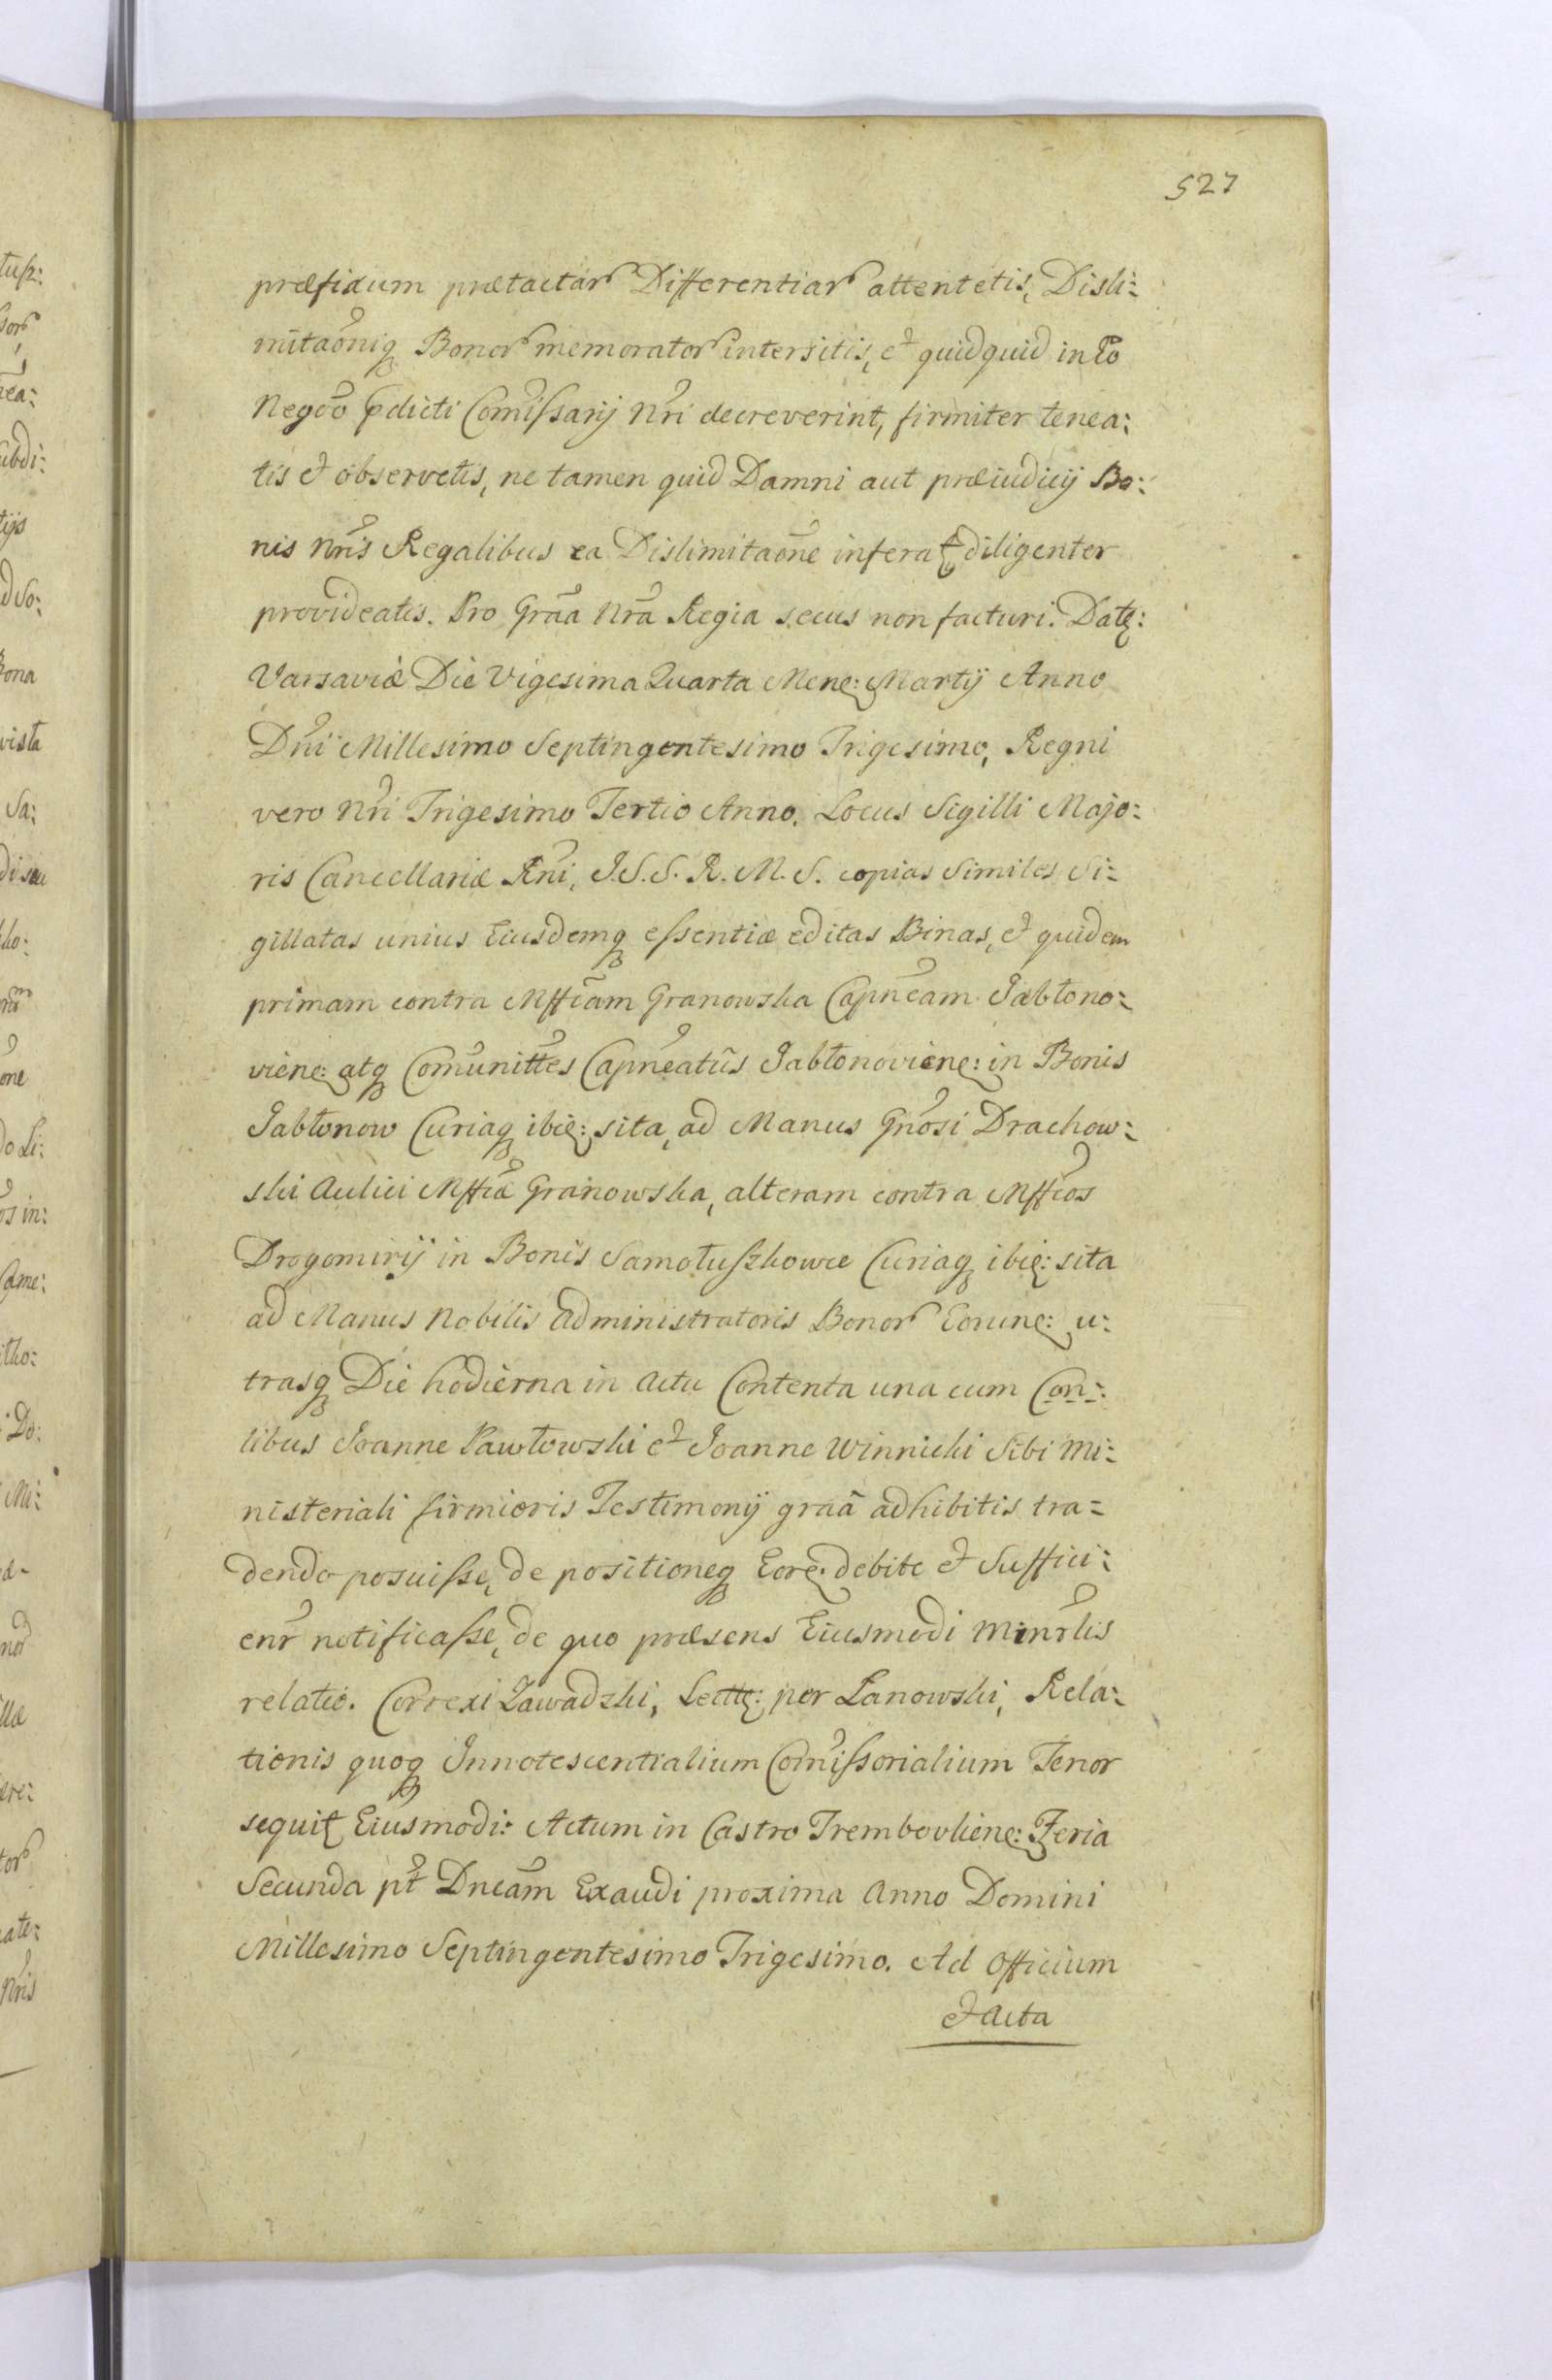 527
præfixum prætactar Differentiar attentetis, Disli:
mitaõniq Bonor memorator intersitis, et quidquid in Eo
Negoõ pdicti Comissarij Nri decreverint, firmiter tenea:
tis et observetis, ne tamen quid Damni aut præiudicij Bo:
nis Nris Regalibus ea Dislimitaõne inferat diligenter
provideatis. Pro Graã Nrã Regia secus non facturi. Datt:
Varsaviæ Die Vigesima Quarta Mene: Martij Anno
Dni Millesimo Septingentesimo Trigesimo, Regni
vero Nri Trigesimo Tertio Anno. Locus Sigilli Majo:
ris Cancellariæ Rni, J.S.S.R.M.S. copias Similes Si:
gillatas unius Eiusdemq essentiæ editas Binas, et quidem
primam contra Mffcam Granowska Capneam Jabłono:
viene: atq Comunittes Capneatus Jabłonoviene: in Bonis
Jabłonow Curiaq ibie: sita, ad Manus Gnosi Drachow:
ski Aulici Mffcæ Granowska, alteram contra Mffcos
Drogomirij in Bonis Samołuszkowce Curiaq ibie: sita
ad Manus Nobilis Administratoris Bonor Eorune: u:
trasq Die hodierna in Actu Contenta una cum Con:
libus Joanne Pawłowski et Joanne Winnicki Sibi Mi:
nisteriali firmioris Testimonij graã adhibitis tra=
dendo posuisse, de positioneq Eore: debite et Suffici:
enr notificasse, de quo præsens Eiusmodi Minrlis
relatio. Correxi Zawadzki, Lectt: per Łanowski, Rela:
tionis quoq Innotescentialium Comissorialium Tenor
sequit Eiusmodi: Actum in Castro Trembovliene: Feria
Secunda pt Dncam Exaudi proxima Anno Domini
Millesimo Septingentesimo Trigesimo. Ad Officium
et Acta